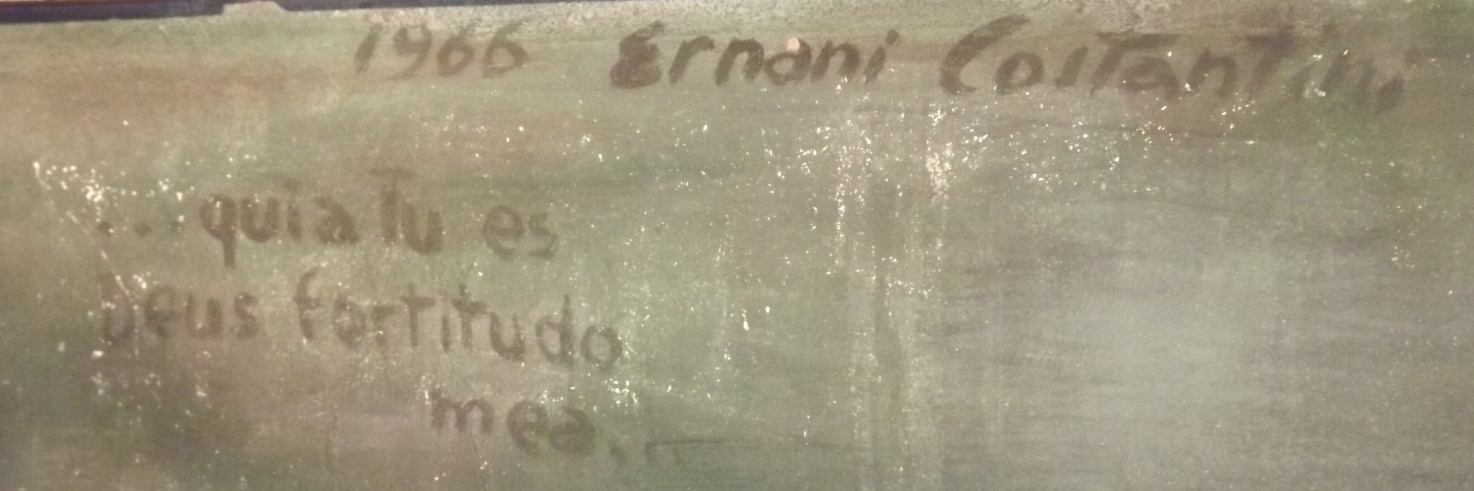 1966 Ernani Costantini
...quia Tu es
Deus fortitudo
mea..